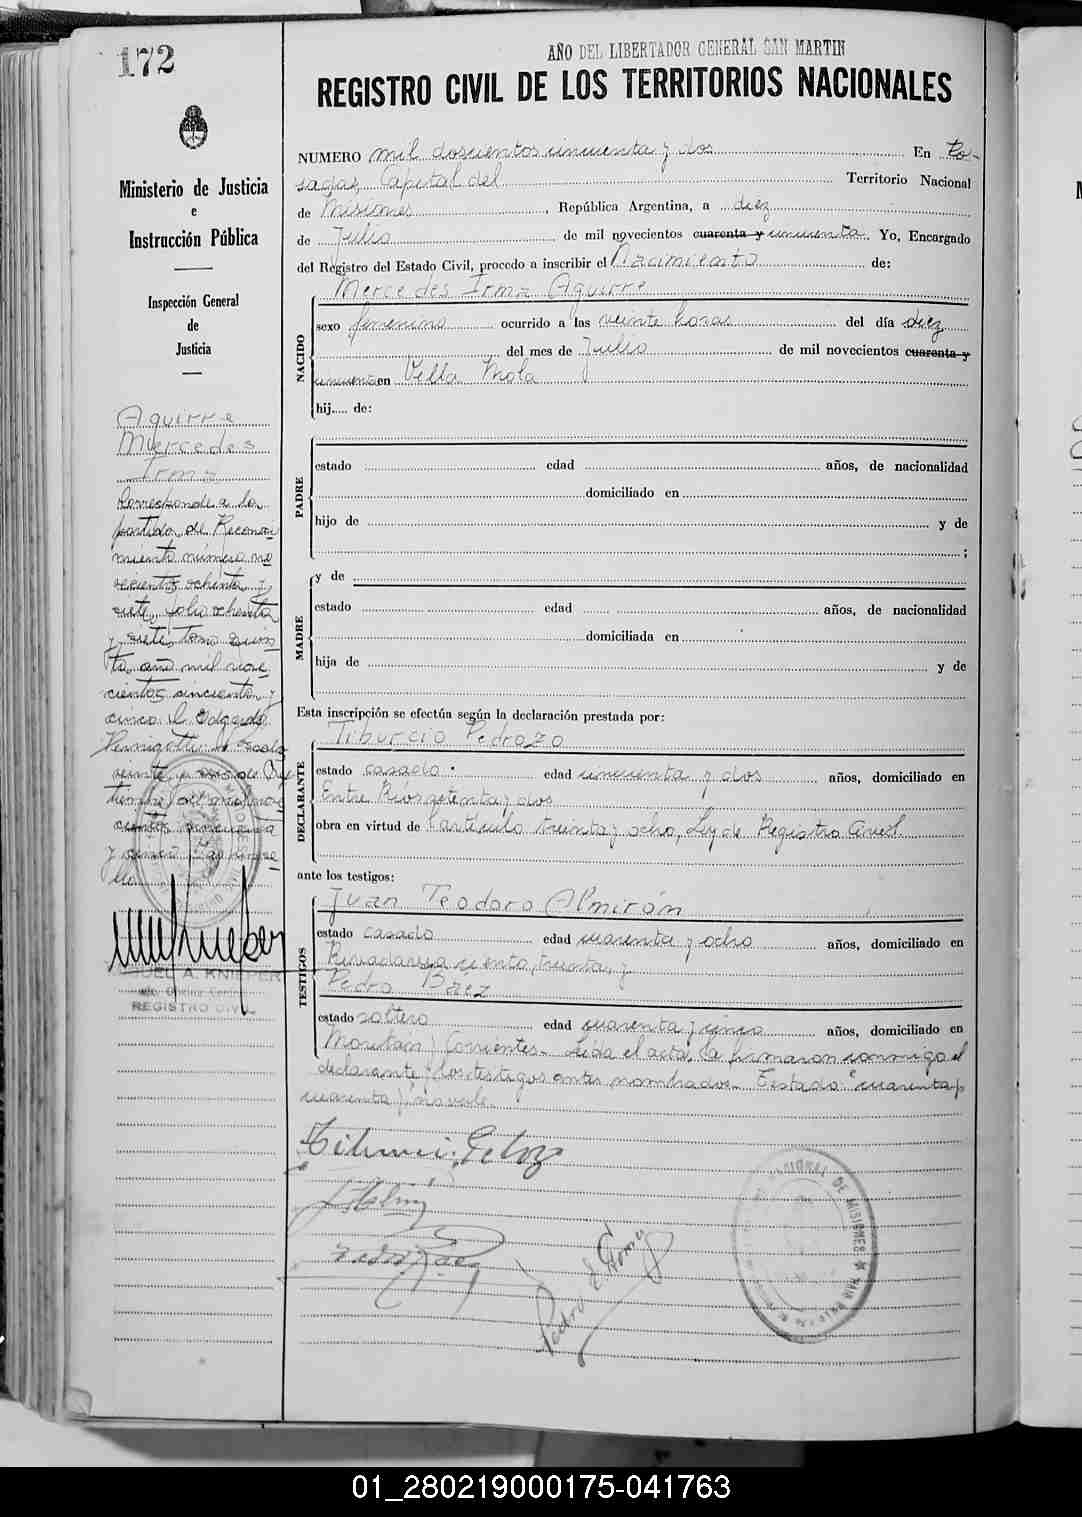 172
AÑO DEL LIBERTADOR GENERAL SAN MARTIN
REGISTRO CIVIL DE LOS TERRITORIOS NACIONALES
Ministerio de Justicia
e
Instrucción Pública
Inspección General
de
Justicia
Aguirre
Mercedes
Irma
Corresponde a la
partida de Reconoci
miento número no
vecientos ochenta y
siete, folio ochenta
y siete, tomo
año mil nove
cientos cincuenta y
cinco
veinte y de
tiembre de mil nove
cientos cincuenta
y
REGISTRO CIVIL
NUMERO mil doscientos cincuenta y dos En Po-
sadas, Capital del Territorio Nacional
de Misiones, República Argentina, a diez
de Julio de mil novecientos cuarenta y cincuenta. Yo, Encargado
del Registro del Estado Civil, procedo a inscribir el Nacimiento de:
Mercedes Irma Aguirre
NACIDO
sexo femenino ocurrido a las veinte horas del día diez
del mes de Julio de mil novecientos cuarenta y
cincuenta en Villa Mola
hij.... de:
PADRE
estado edad años, de nacionalidad
domiciliado en
hijo de y de
;
MADRE
y de
estado edad años, de nacionalidad
domiciliada en
hija de y de
Esta inscripción se efectúa según la declaración prestada por:
Tiburcio Pedrozo
DECLARANTE
estado casado edad cincuenta y dos años, domiciliado en
Entre Ríos setenta y dos
obra en virtud de l'artículo treinta y ocho, Ley de Registro Civil
ante los testigos:
Juan Teodoro Almirón
TESTIGOS
estado casado edad cuarenta y ocho años, domiciliado en
Rivadavia ciento treinta y
Pedro Báez
estado soltero edad cuarenta y cinco años, domiciliado en
y Corrientes. Leída el acta, la firmaron conmigo el
declarante y los testigos antes nombrados. Testado "cuarenta y
cuarenta y" no vale.
Pedro E. Gómez
01_280219000175-041763